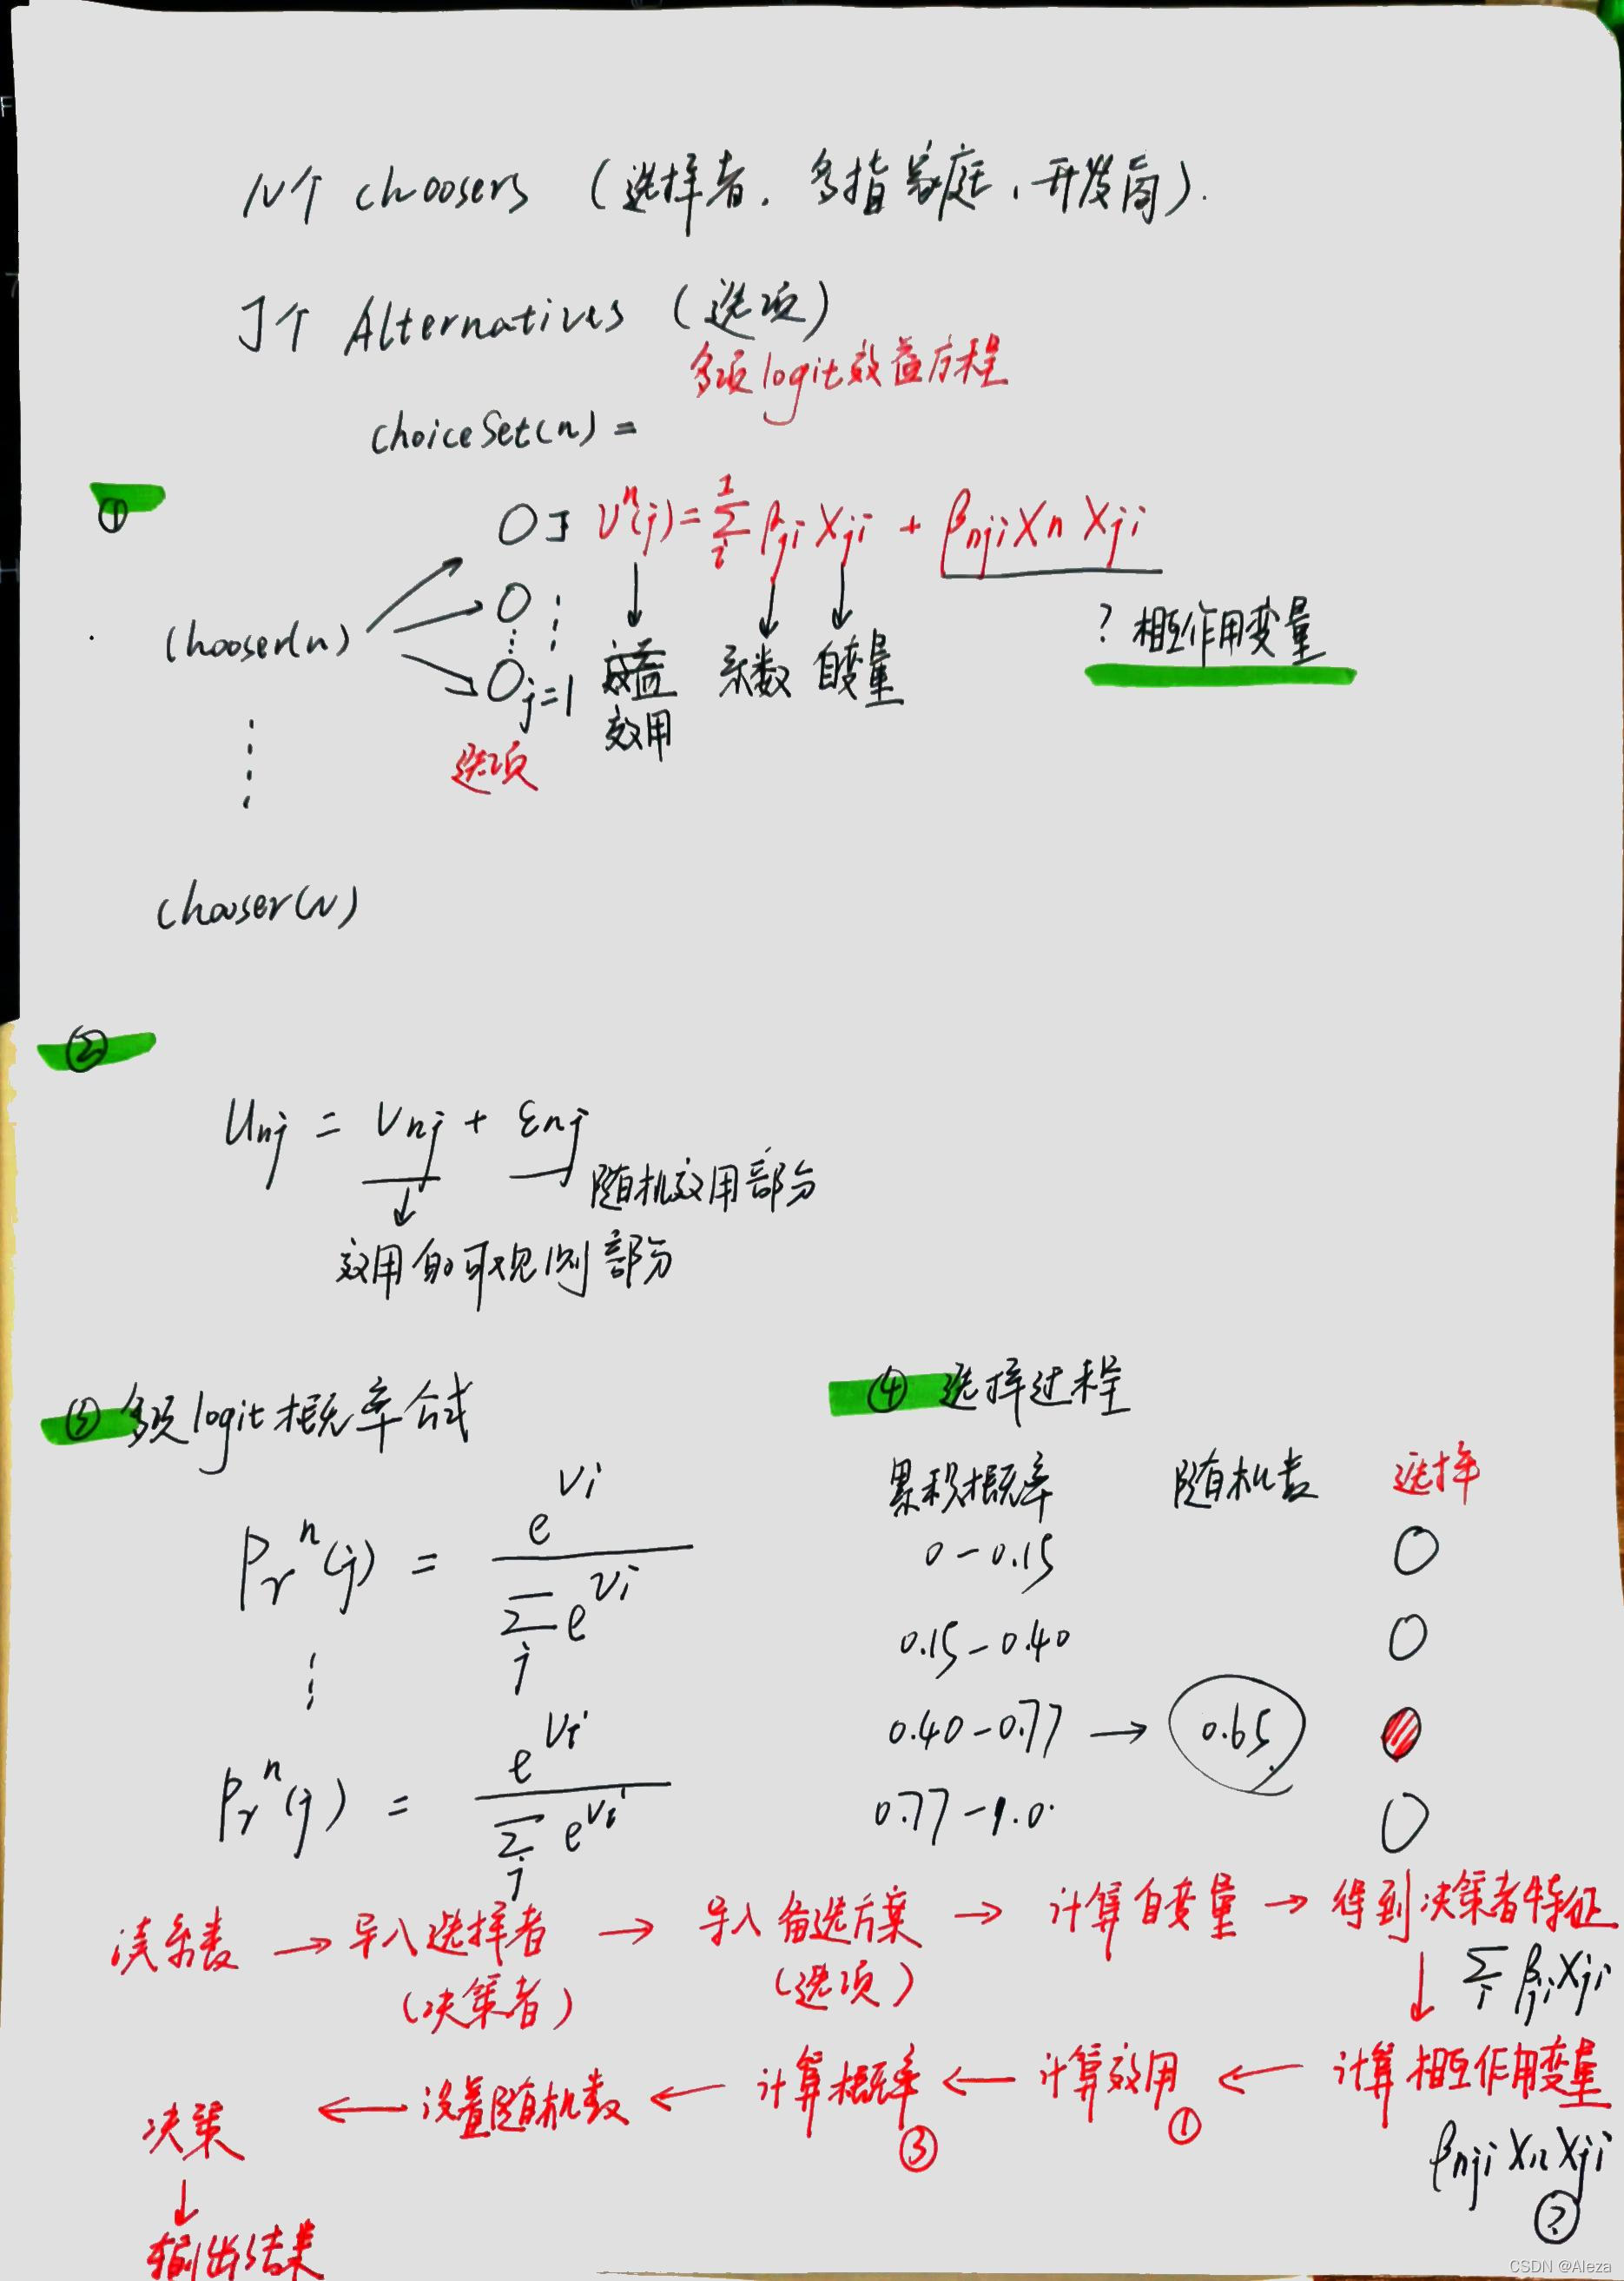 N个 choosers (选择者, 多指家庭、开发商).
J个 Alternatives (选项)
多项logit效益方程
choiceSet(n) =
①
J V^n(j) = Σ_i^I β_ji X_ji + β_nji X_n X_ji
chooser(n)
j=1
效益 系数 自变量
? 相互作用变量
效用
选项
chooser(N)
②
U_nj = V_nj + ε_nj
随机效用部分
效用的可观测部分
③ 多项logit概率公式
④ 选择过程
累积概率 随机数 选择
P_r^n(j) = e^Vi / Σ_j e^Vi
0-0.15
0.15-0.40
0.40-0.77 → 0.65
P_r^n(j) = e^Vi / Σ_j e^Vi
0.77-1.0
读系数 → 导入选择者 → 导入备选方案 → 计算自变量 → 得到决策者特征
(决策者) (选项)
↓ Σ_i β_ji X_ji
决策 ← 设置随机数 ← 计算概率 ← 计算效用 ← 计算相互作用变量
③ ①
β_nji X_n X_ji
?
↓
输出结果
CSDN @Aleza